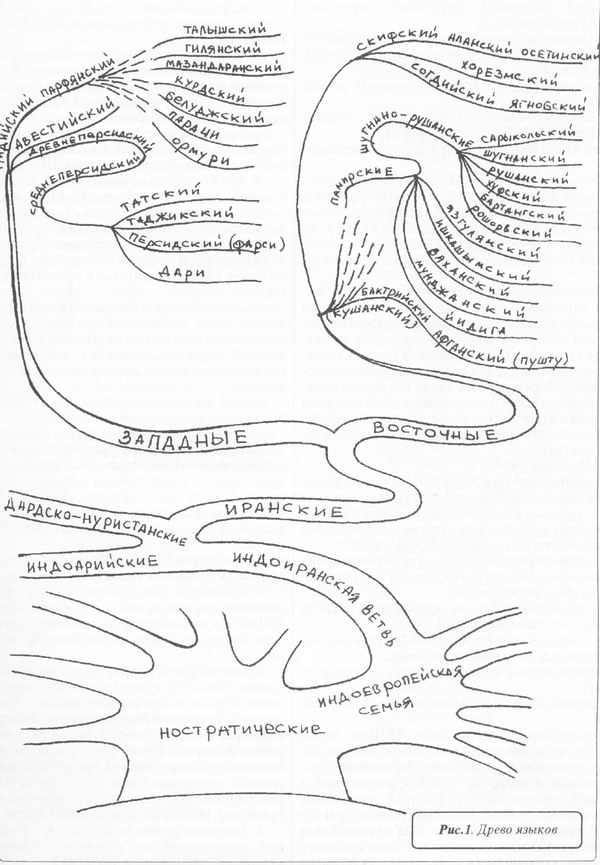 ТАЛЫШСКИЙ
ГИЛЯНСКИЙ
МАЗАНДАРАНСКИЙ
КУРДСКИЙ
БЕЛУДЖСКИЙ
ПАРАЧИ
ОРМУРИ
ПАРФЯНСКИЙ
АВЕСТИЙСКИЙ
ДРЕВНЕПЕРСИДСКИЙ
СРЕДНЕПЕРСИДСКИЙ
ТАТСКИЙ
ТАДЖИКСКИЙ
ПЕРСИДСКИЙ (ФАРСИ)
ДАРИ
СКИФСКИЙ АЛАНСКИЙ ОСЕТИНСКИЙ
ХОРЕЗМСКИЙ
СОГДИЙСКИЙ ЯГНОБСКИЙ
ШУГНАНО-РУШАНСКИЕ
САРЫКОЛЬСКИЙ
ШУГНАНСКИЙ
РУШАНСКИЙ
ХУФСКИЙ
БАРТАНГСКИЙ
РОШОРВСКИЙ
ПАМИРСКИЕ
ЯЗГУЛЯМСКИЙ
ИШКАШЫМСКИЙ
ВАХАНСКИЙ
МУНДЖАНСКИЙ
ЙИДИГА
БАКТРИЙСКИЙ
(КУШАНСКИЙ)
АФГАНСКИЙ (ПУШТУ)
ЗАПАДНЫЕ
ВОСТОЧНЫЕ
ИРАНСКИЕ
ДАРДСКО-НУРИСТАНСКИЕ
ИНДОАРИЙСКИЕ
ИНДОИРАНСКАЯ ВЕТВЬ
ИНДОЕВРОПЕЙСКАЯ
СЕМЬЯ
НОСТРАТИЧЕСКИЕ
Рис.1. Древо языков